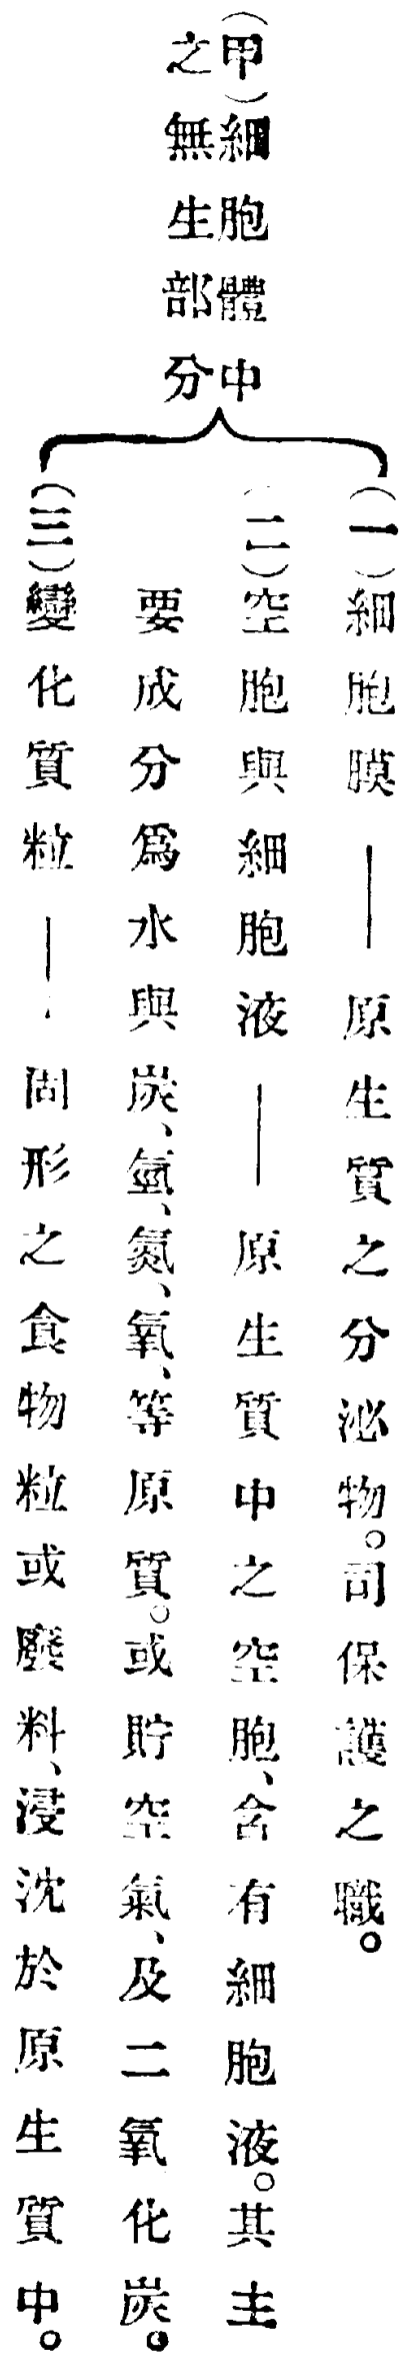 (甲)細胞體中
之無生部分
(一)細胞膜——原生質之分泌物。司保護之職。
(二)空胞與細胞液——原生質中之空胞、含有細胞液。其主
要成分爲水與炭、氫、氮、氧、等原質。或貯空氣、及二氧化炭。
(三)變化質粒——固形之食物粒或廢料、浸沈於原生質中。